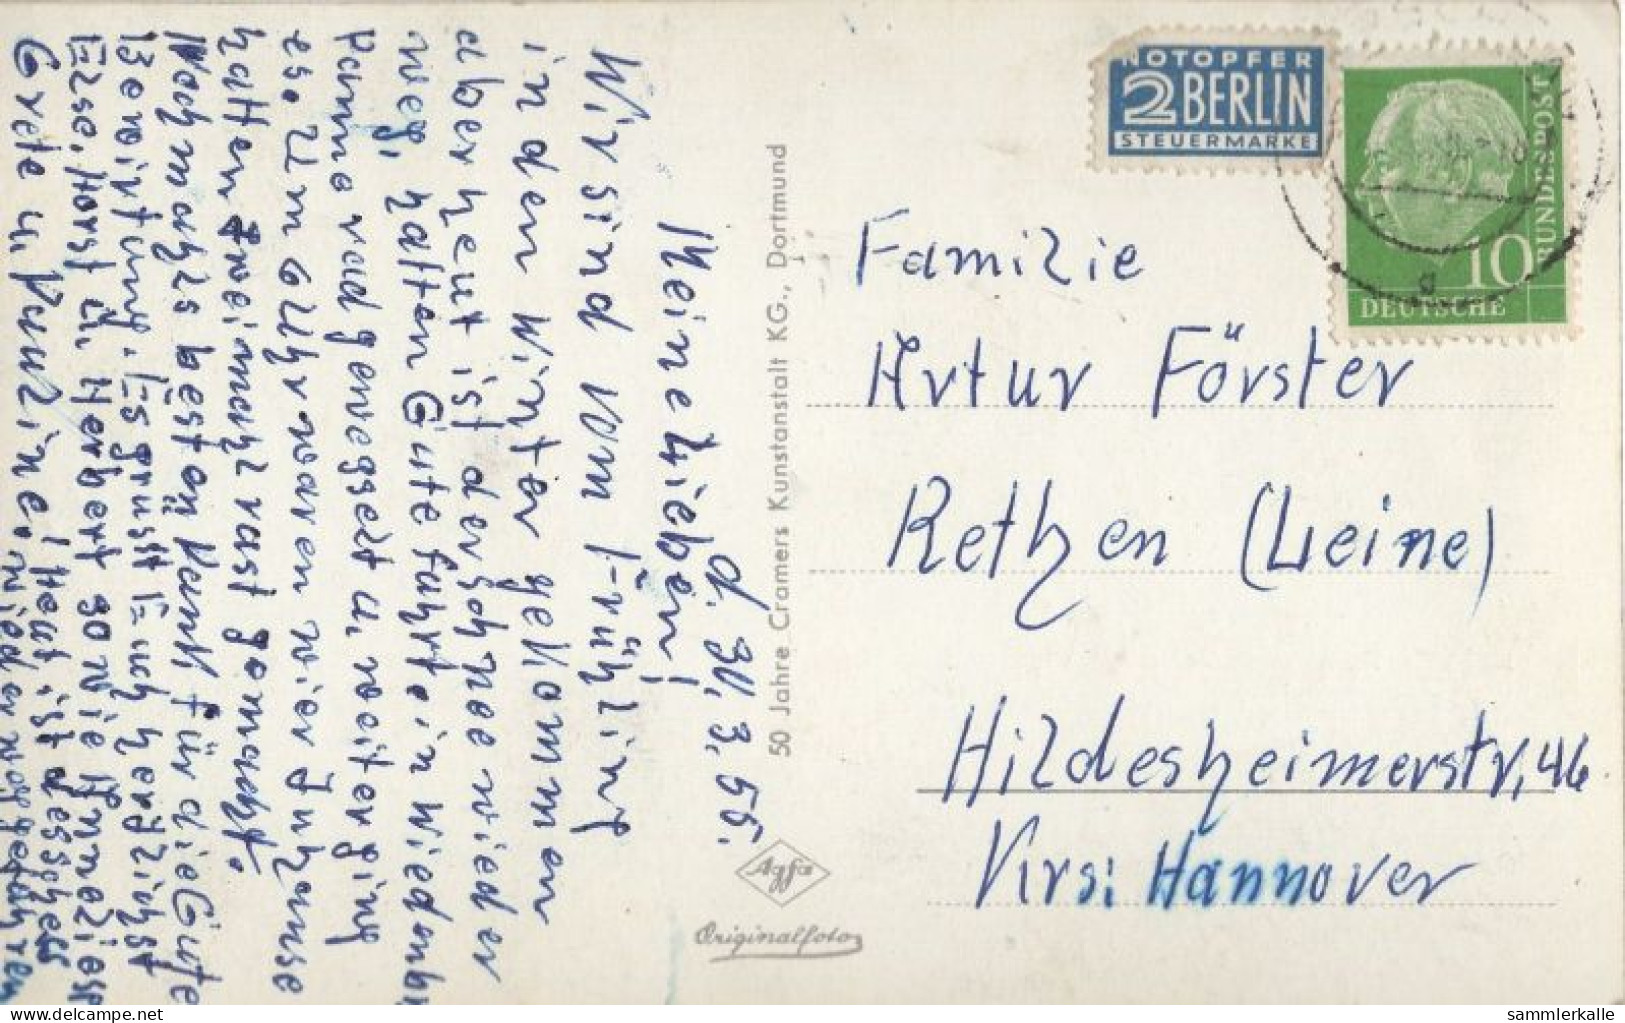 d. 31, 3, 55.
Meine Lieben!
Wir sind vom Frühling
in den Winter gekommen
aber heut ist der Schnee wieder
weg, hatten Güte fahrt in Wiedenbr
Panne rad gewegselt u, weiter ging
es. Um 6 Uhr waren wier Zuhause
hatten zweimahl rast gemacht.
Nochmahls besten Dank für die Güte
Bewirtung. Es grüsst Euch herzlichst
Else, Horst u, Herbert sowie Anneliese
Grete u,
Heut ist des schess
wieder weg gefahren
NOTOPFER
2 BERLIN
STEUERMARKE
DEUTSCHE
BUNDESPOST
10
Familie
Artur Förster
Rethen (Leine)
Hildesheimerstr, 46
Krs: Hannover
50 Jahre Cramers Kunstanstalt KG., Dortmund
Agfa
Originalfoto
www.delcampe.net
sammlerkalle